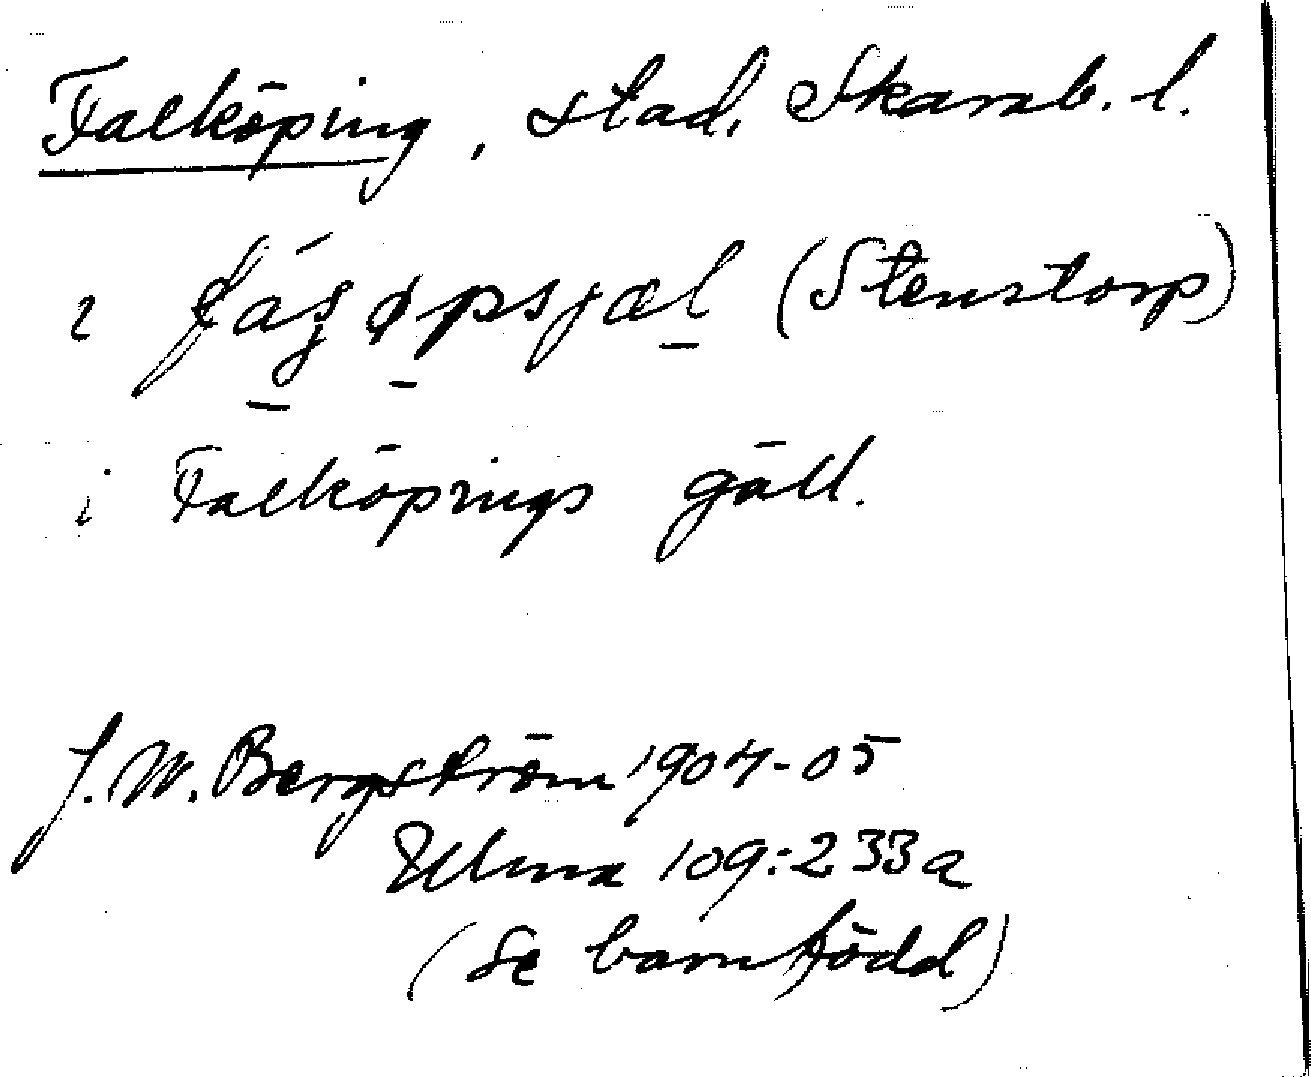 Falköping, stad, Skarab. l.
i fáʒøpsjæl (Stenstorp)
i Falköpings gäll.
J. W. Bergström 1904-05
Ulma 109:233a
(Se barnfödd)